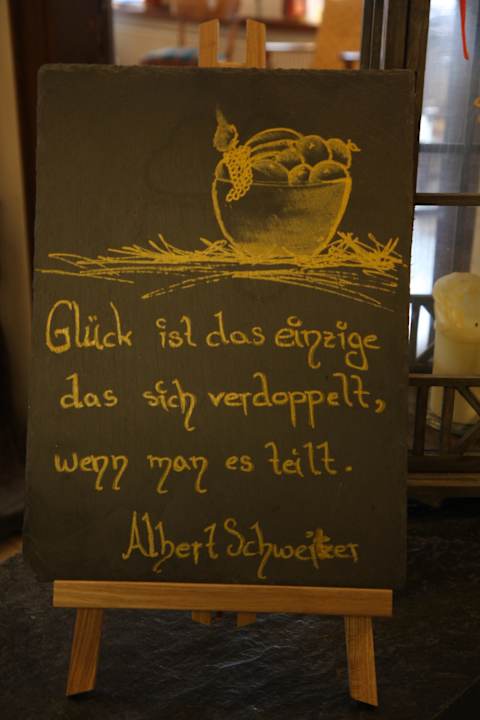 Glück ist das einzige
das sich verdoppelt,
wenn man es teilt.
Albert Schweitzer